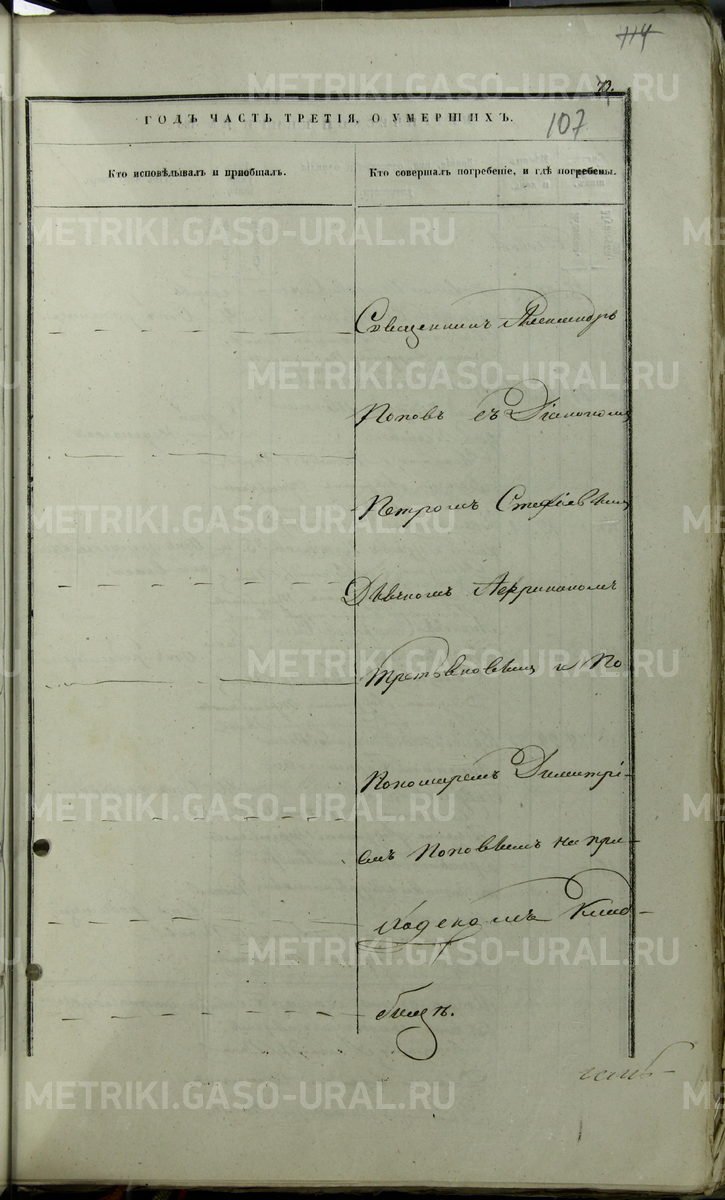 114
107
ГОДЪ ЧАСТЬ ТРЕТІЯ, О УМЕРШИХЪ.
Кто исповѣдывалъ и пріобщалъ.
Кто совершалъ погребеніе, и гдѣ погребены.
Священникъ Александръ
Поповъ съ Діакономъ
Петромъ Стефа
Дьячкомъ
Третьяковымъ и По
Пономаремъ Димитрі-
емъ Поповымъ на при-
ходскомъ Клад-
бищѣ.
METRIKI.GASO-URAL.RU
METRIKI.GASO-URAL.RU
METRIKI.GASO-URAL.RU
METRIKI.GASO-URAL.RU
METRIKI.GASO-URAL.RU
METRIKI.GASO-URAL.RU
METRIKI.GASO-URAL.RU
METRIKI.GASO-URAL.RU